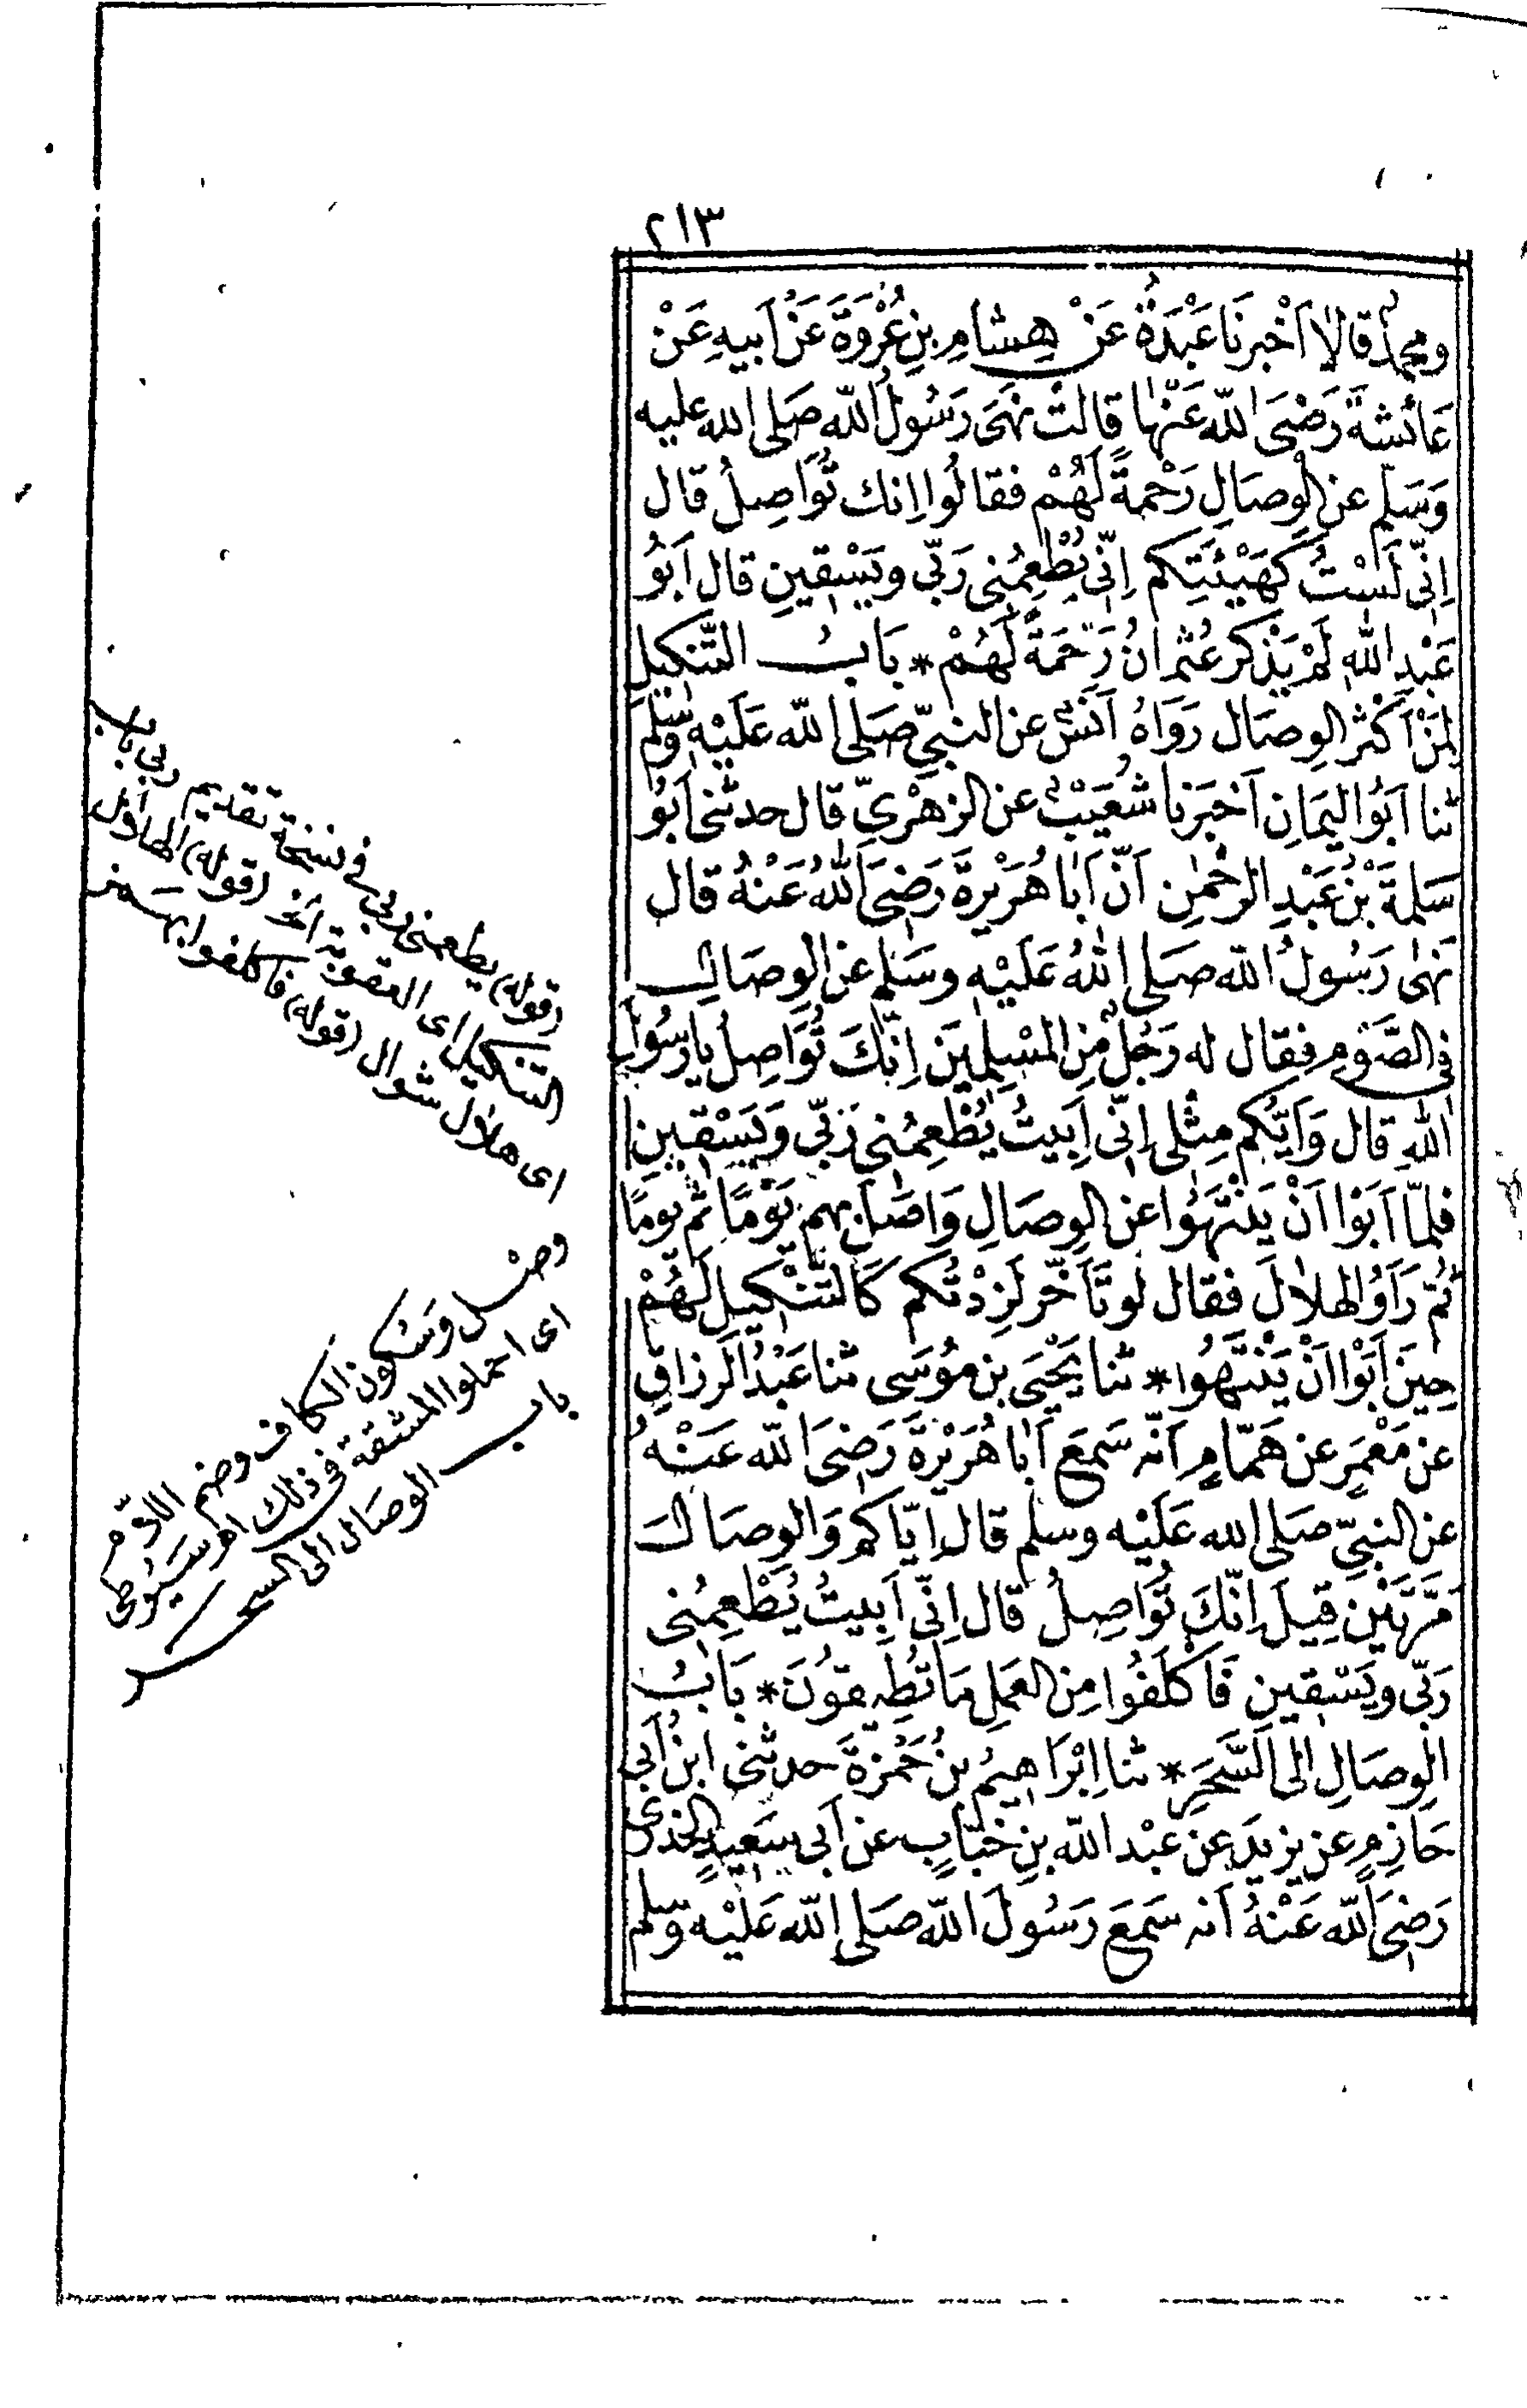 ٢١٣
ومحمدٌ قالا اَخْبرنَا عَبْدَةُ عَنْ هِشامِ بنِ عُرْوَةَ عَنْ اَبيهِ عَنْ
عَائشةَ رَضِىَ اللّه عَنْها قالتْ نَهَى رَسُولُ اللّه صَلى الله عليه
وَسَلم عن الْوِصَالِ رَحْمةً لَهُمْ فقالُوا اِنك تُوَاصِلُ قال
اِنِّى لَسْتُ كَهَيْئَتِكم اِنِّى يُطْعِمُنِى رَبِّى ويَسْقِينِ قال اَبُو
عَبْدِ اللّٰهِ لَمْ يَذْكر عُثْمانُ رَحْمَةً لَهُمْ * بَابُ التَّنكيلِ
لِمَنْ اَكْثر الوِصَال رَوَاهُ اَنَسٌ عن النبِىّ صَلى اللّه عَلَيْهِ وسلم
ثنا اَبُو اليَمَانِ اَخبَرَنا شُعَيْبٌ عن الزهْرِىِّ قال حدثنى اَبُو
سَلمةَ بْنُ عَبْدِ الرحْمٰنِ اَنّ اَبا هُرَيْرةَ رَضِىَ اللّٰهُ عَنْهُ قال
نَهٰى رَسُولُ اللّه صَلى اللّٰهُ عَلَيْهِ وسَلم عن الوِصَالِ
فى الصَّوْمِ فقال له رَجُلٌ مِنَ المسْلِمِينَ اِنّكَ تُوَاصِلُ يا رَسُولَ
اللّهِ قال وَاَيُّكم مِثْلى اِنّى اَبِيتُ يُطْعِمُنى رَبِّى وَيَسْقِينِ
فلمّا اَبَوْا اَنْ يَنْتَهُوا عن الوِصَالِ وَاصَلَ بهم يَوْمًا ثم يومًا
ثُمّ رَاَوُا الهلالَ فقال لو تَاَخّر لَزِدْتُكم كَالتَّنْكيلِ لَهُمْ
حِينَ اَبَوْا اَنْ يَنْتَهُوا * ثنا يَحْيَى بن مُوسَى ثنا عَبْدُ الرزاقِ
عن مَعْمَرٍ عن هَمّامٍ اَنّه سَمِعَ اَبا هُرَيْرةَ رَضِىَ اللّه عَنْهُ
عن النبىِّ صَلى الله عَلَيْه وسلم قال اِيّاكم وَالوِصَالَ
مَرَّتَيْنِ قِيلَ اِنّكَ تُوَاصِلُ قال اِنِّى اَبِيتُ يُطْعِمُنى
رَبّى ويَسْقِينِ فَاكْلَفُوا مِن العَمَلِ مَا تُطِيقُونَ * بَابُ
الوِصَالِ الى السَّحَرِ * ثنا اِبْرَاهِيمُ بنُ حَمْزةَ حدثنى ابنُ اَبِى
حَازِمٍ عن يزيدَ عن عبْد اللّه بنِ خَبّابٍ عن اَبى سَعِيدٍ الخدرى
رَضِىَ اللّه عَنْهُ اَنه سَمِعَ رَسُولَ اللّه صَلى اللّه عَلَيْه وسلم
(قوله) يطعمنى ربى فى نسخة تقديم ربى باب
التنكيل اى العقوبة اهـ (قوله) الهلال
اى هلال شوال (قوله) فاكلفوا بهمز
وصل وسكون الكاف وضم اللام
اى احملوا المشقة فى ذلك اهـ سيوطى
باب الوصال الى السحر